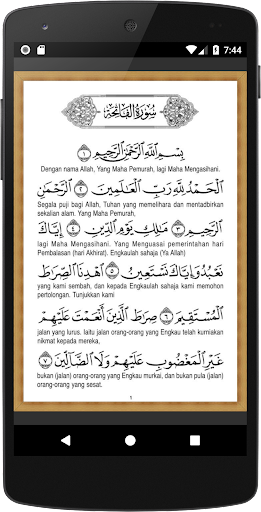 7:44
سُورَةُ الْفَاتِحَةِ
بِسْمِ اللَّهِ الرَّحْمَٰنِ الرَّحِيمِ ١
Dengan nama Allah, Yang Maha Pemurah, lagi Maha Mengasihani.
الْحَمْدُ لِلَّهِ رَبِّ الْعَالَمِينَ ٢ الرَّحْمَٰنِ
Segala puji bagi Allah, Tuhan yang memelihara dan mentadbirkan
sekalian alam. Yang Maha Pemurah,
الرَّحِيمِ ٣ مَالِكِ يَوْمِ الدِّينِ ٤ إِيَّاكَ
lagi Maha Mengasihani. Yang Menguasai pemerintahan hari
Pembalasan (hari Akhirat). Engkaulah sahaja (Ya Allah)
نَعْبُدُ وَإِيَّاكَ نَسْتَعِينُ ٥ اهْدِنَا الصِّرَاطَ
yang kami sembah, dan kepada Engkaulah sahaja kami memohon
pertolongan. Tunjukkan kami
الْمُسْتَقِيمَ ٦ صِرَاطَ الَّذِينَ أَنْعَمْتَ عَلَيْهِمْ
jalan yang lurus. Iaitu jalan orang-orang yang Engkau telah kurniakan
nikmat kepada mereka,
غَيْرِ الْمَغْضُوبِ عَلَيْهِمْ وَلَا الضَّالِّينَ ٧
bukan (jalan) orang-orang yang Engkau murkai, dan bukan pula (jalan)
orang-orang yang sesat.
١